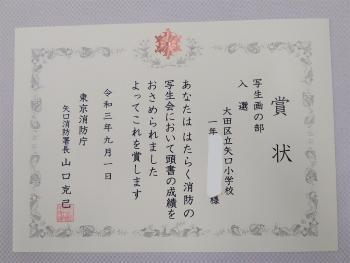 賞状
写生画の部
入選
大田区立矢口小学校
一年
様
あなたは はたらく消防の
写生会において頭書の成績を
おさめられました
よってこれを賞します
令和三年九月一日
東京消防庁
矢口消防署長 山口克己